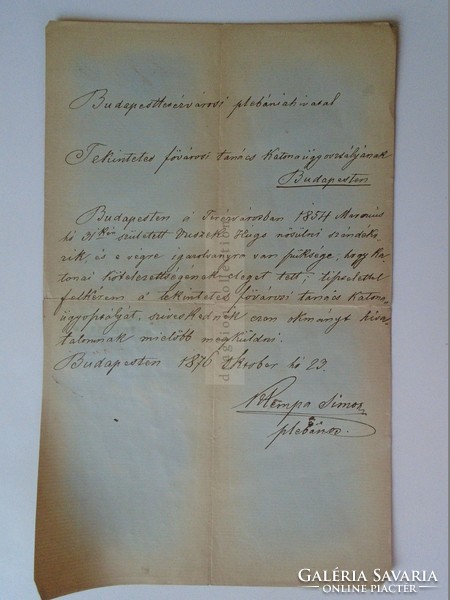 Budapestterézvárosi plébániahivatal
Tekintetes fővárosi tanács Katonaügyosztályának
Budapesten
Budapesten a Terézvárosban 1854 Marczius
hó 31kén született Huszek Hugo nősülni szándéko-
zik, és e végre igazolványra van szüksége, hogy ka-
tonai kötelezettségének eleget tett; tisztelettel
felkérem a tekintetes fővárosi tanács Katona-
ügyosztályát, sziveskednék ezen okmányt hiva-
talomnak mielőbb megküldni.
Budapesten 1876 Oktober hó 23.
Klempa Simon
plébános.
GALÉRIA SAVARIA
ONLINE PIACTÉR